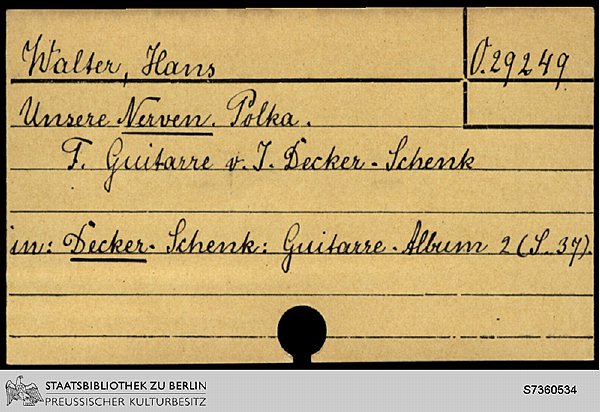 Walter, Hans
O. 29249
Unsere Nerven. Polka.
F. Guitarre v. J. Decker-Schenk
in: Decker-Schenk: Guitarre-Album 2 (S. 37).
STAATSBIBLIOTHEK ZU BERLIN
PREUSSISCHER KULTURBESITZ
S7360534